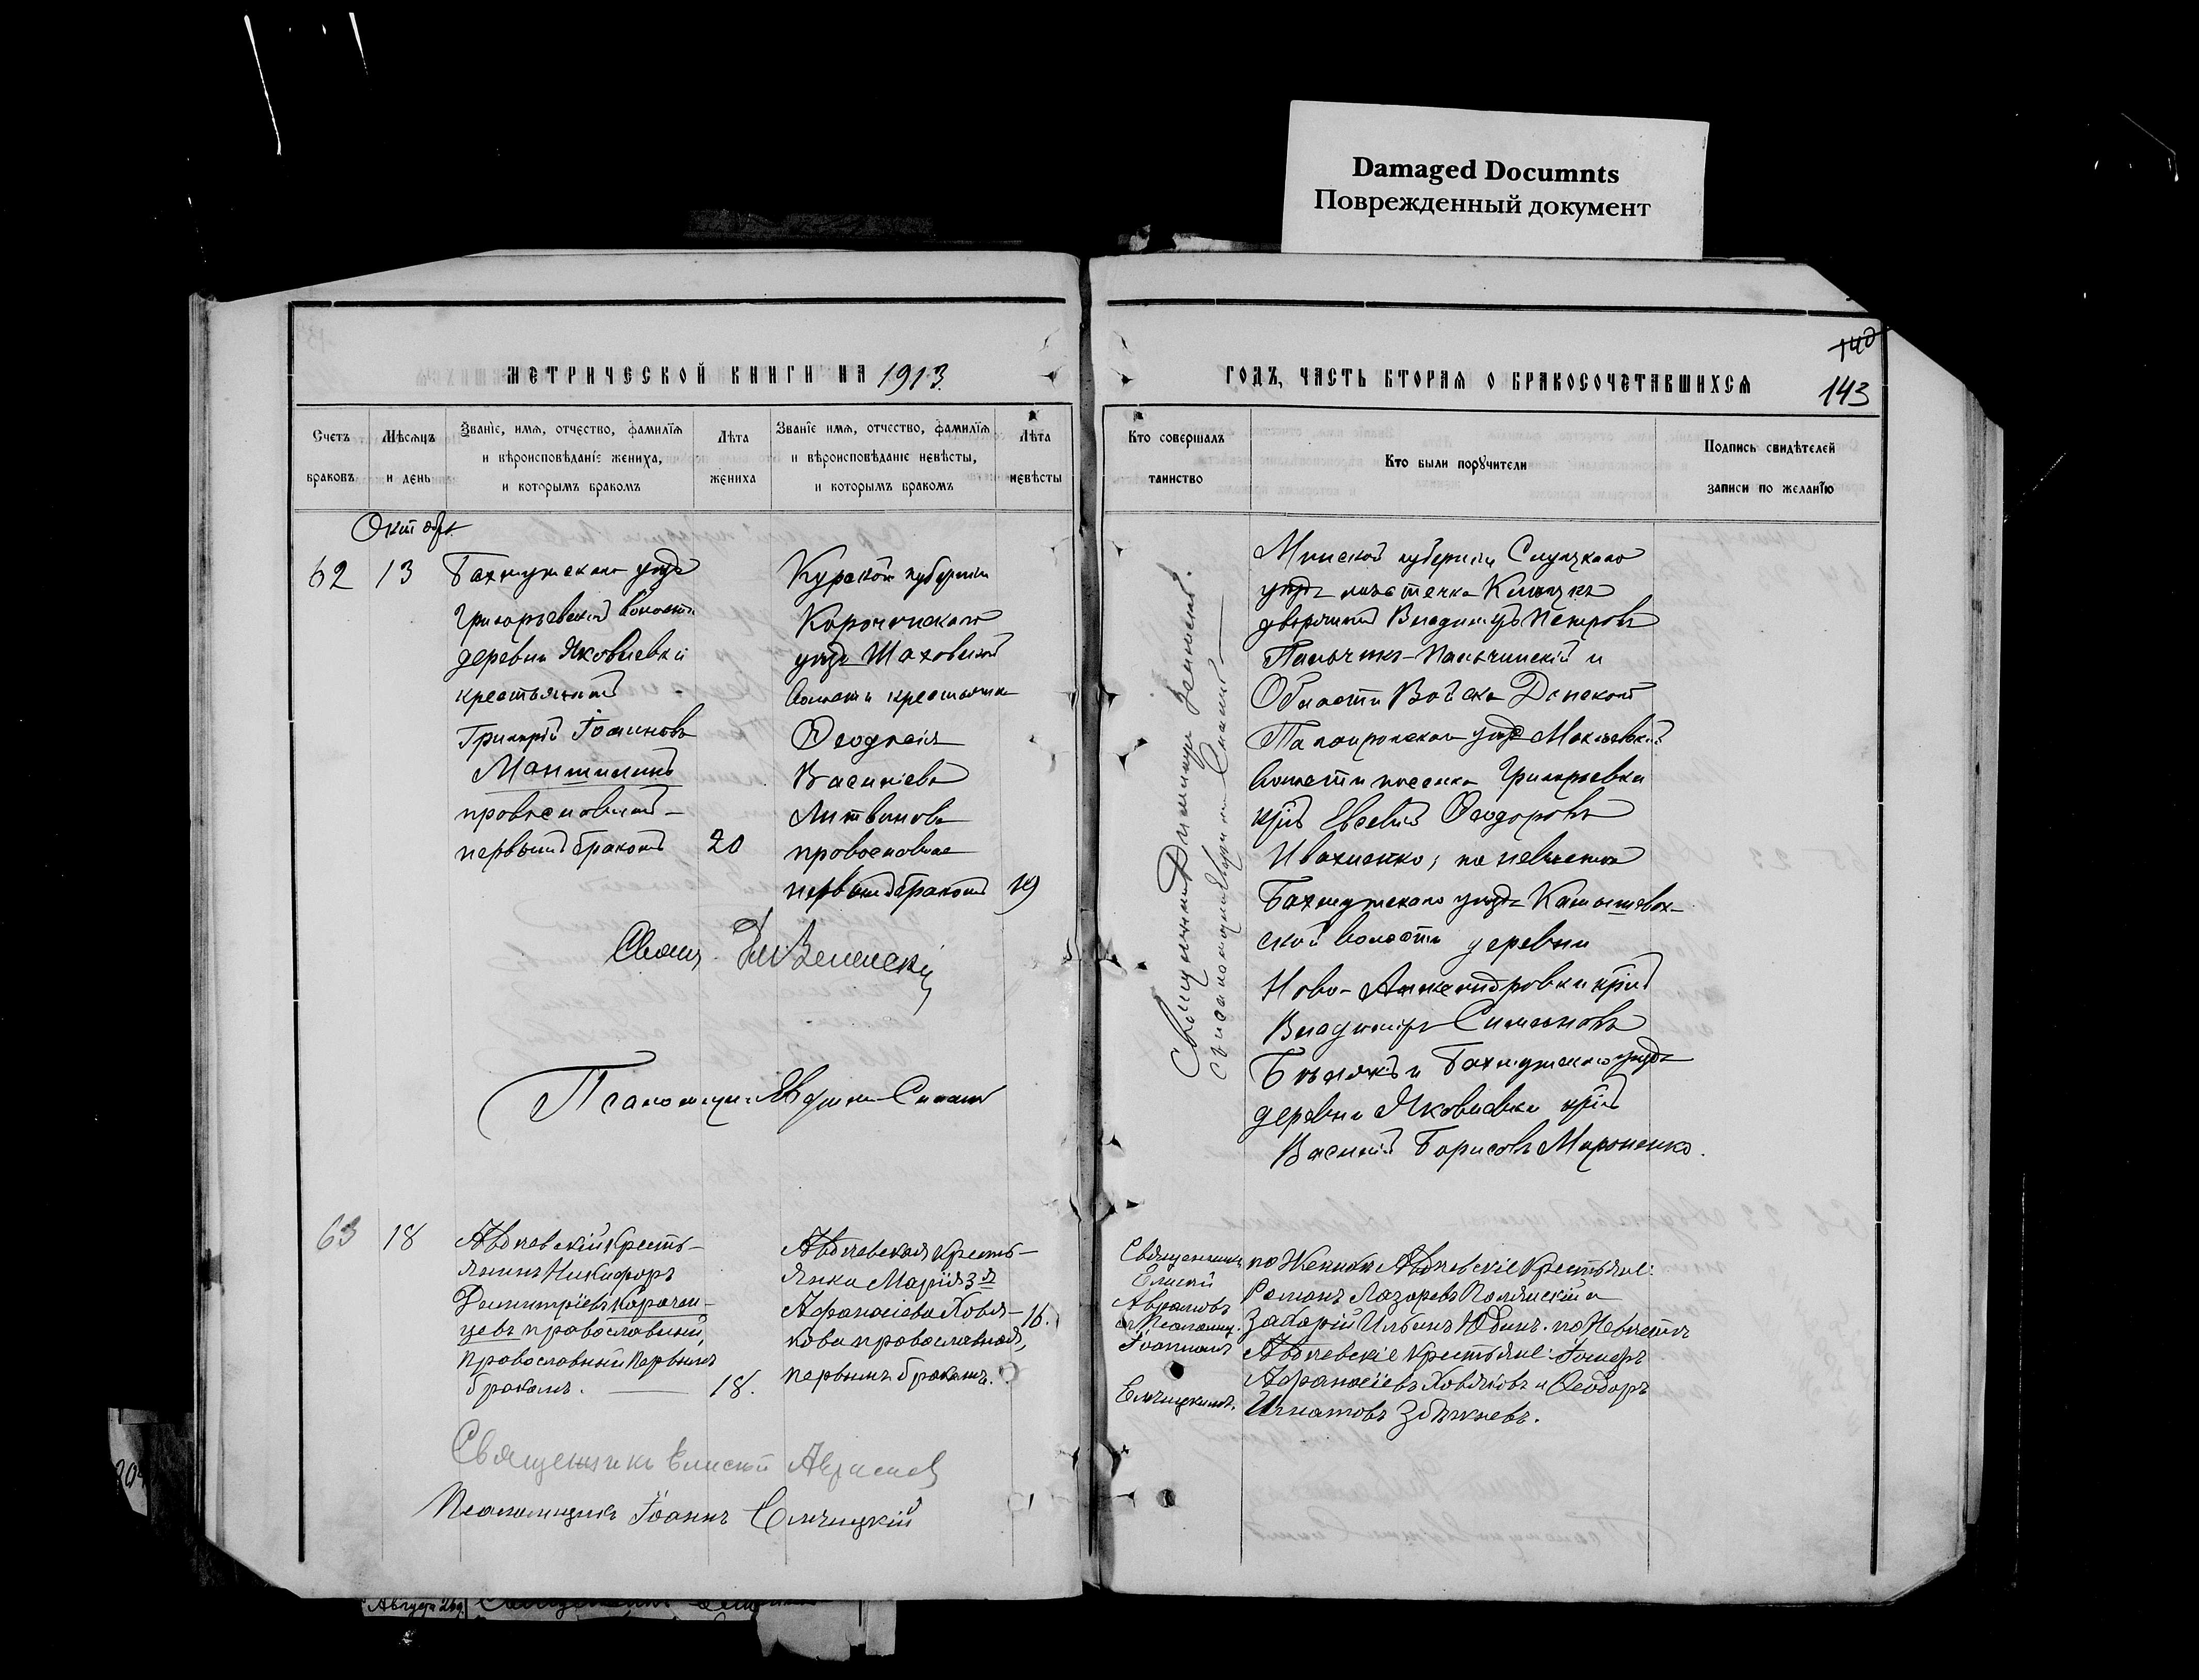 Damaged Documnts
Поврежденный документ
МЕТРИЧЕСКОЙ КНИГИ НА 1913
Счетъ браковъ
Мѣсяцъ и день
Званіе, имя, отчество, фамилія и вѣроисповѣданіе жениха, и которымъ бракомъ
Лѣта жениха
Званіе имя, отчество, фамилія и вѣроисповѣданіе невѣсты, и которымъ бракомъ
Лѣта невѣсты
62
13
Бахмутскаго уѣзда
Григорьевской волости
деревни Яковлевки
крестьянинъ
Григорій Іоанновъ
православный
первымъ бракомъ
20
Курской губерніи
Корочанскаго
уѣзда Шаховской
волости крестьянка
Ѳеодосія
Васильева
Литвинова
православное
первымъ бракомъ
19
Свящ.
63
18
Авдѣевскій Кресть-
янинъ Никифоръ
Димитріевъ Карачен-
цевъ православный,
Православный Первымъ
бракомъ.
18.
Авдѣевская Кресть-
янка Марія 3я
Афанасіева Ховя-
кова православная,
первымъ бракомъ.
16.
Священникъ Елисей Аврамов
Псаломщикъ Іоаннъ
ГОДЪ, ЧАСТЬ ВТОРАЯ О БРАКОСОЧЕТАВШИХСЯ
140
143
Кто совершалъ таинство
Кто были поручители
Подпись свидѣтелей записи по желанію
Минской губерніи Слуцкаго
уѣзда мѣстечка Клецкъ
дворянинъ Владиміръ Петровъ
Области Войска Донского
Таганрогскаго уѣзда Макѣевской
волости поселка Григорьевки
Евсевій Ѳеодоровъ
Ивахненко; по невѣстѣ
Бахмутскаго уѣзда
ской волости деревни
Ново-Александровки
Владиміръ Симеоновъ
и Бахмутскаго уѣзда
деревни Яковлевки
Василій Борисовъ Мироненко.
Священникъ
Елисей
Аврамовъ
съ Псаломщ.
Іоанномъ
по Женихѣ Авдѣевскіе Крестьяне:
Романъ Лазаревъ и
Захарій Ильинъ Юдинъ. по Невѣстѣ
Авдѣевскіе крестьяне:
Афанасіевъ Ховяковъ и Ѳеодоръ
Игнатовъ